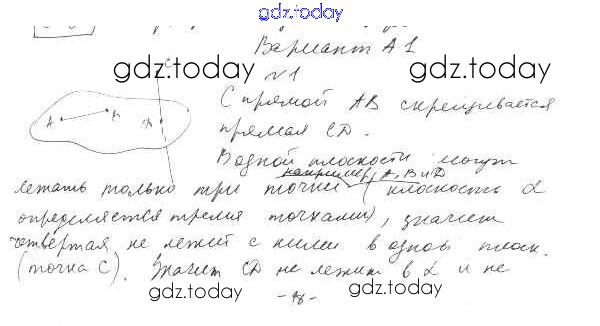 gdz.today
Вариант А1
gdz.today gdz.today
C
N1
С прямой АВ скрещивается
прямая СD.
A B D
В одной плоскости могут
например, A, B и D
лежать только три точки (плоскость α
определяется тремя точками), значит
четвёртая не лежит с ними в одной плоск.
(точка С). Значит CD не лежит в α и не
gdz.today gdz.today